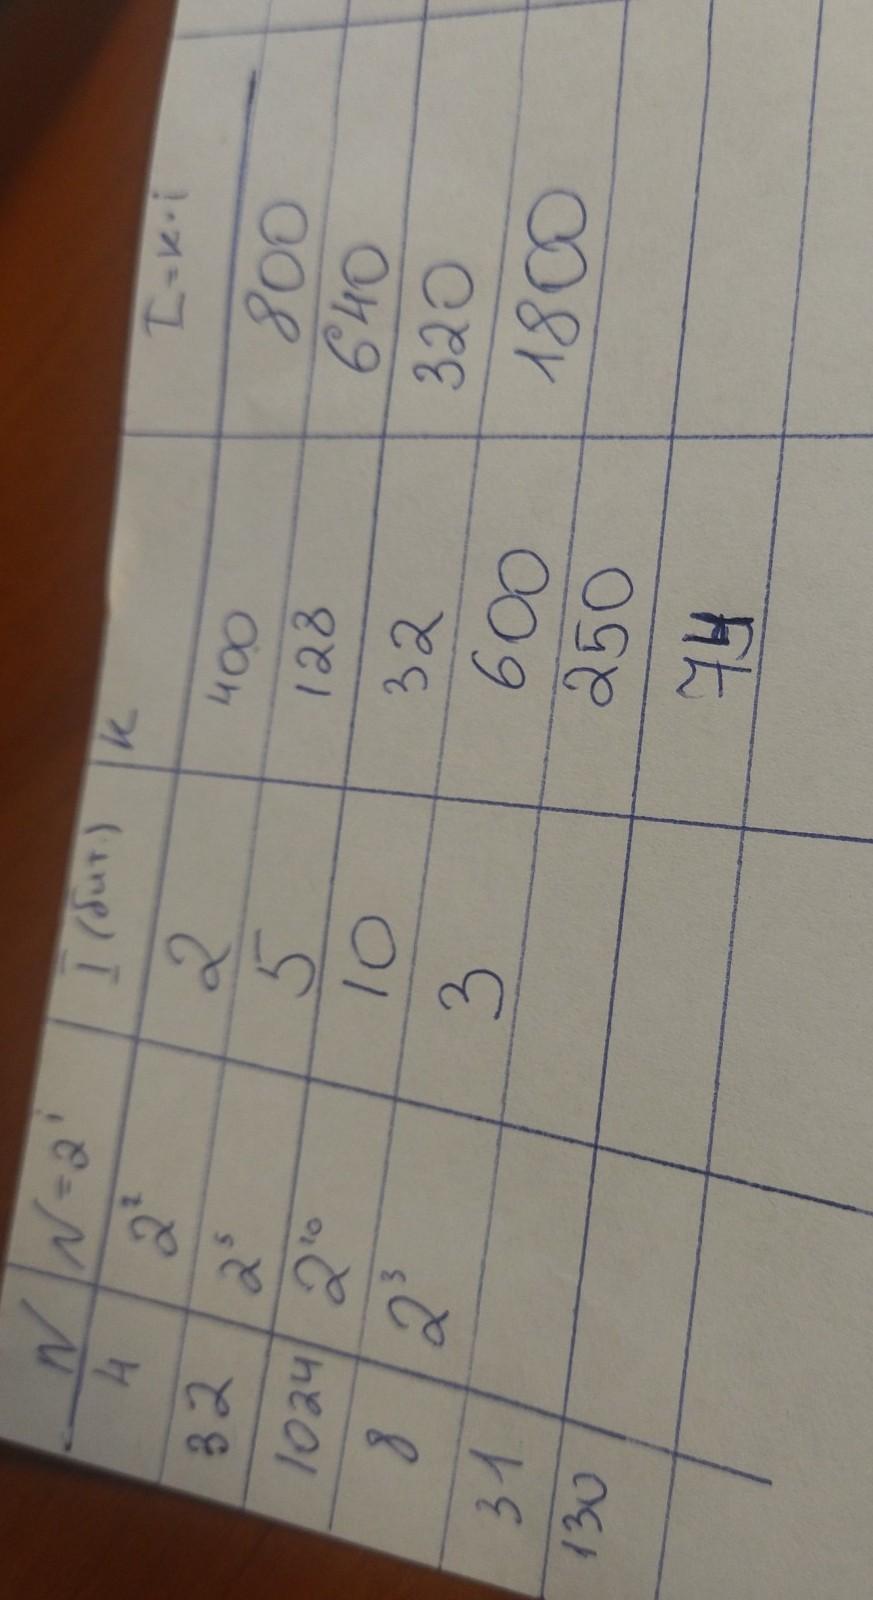 N N=2ⁱ I (бит.) K I=K·i
4 2² 2 400 800
32 2⁵ 5 128 640
1024 2¹⁰ 10 32 320
8 2³ 3 600 1800
31 250
130